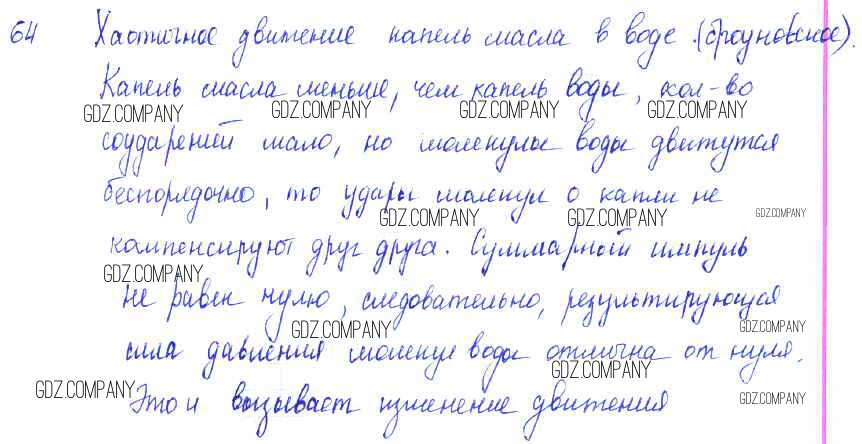 64 Хаотичное движение капель масла в воде. (броуновское).
Капель масла меньше, чем капель воды, кол-во
GDZ.COMPANY GDZ.COMPANY GDZ.COMPANY GDZ.COMPANY
соударений мало, но молекулы воды движутся
беспорядочно, то удары молекул о капли не
GDZ.COMPANY GDZ.COMPANY GDZ.COMPANY
компенсируют друг друга. Суммарной импуль
GDZ.COMPANY
не равен нулю, следовательно, результирующая
GDZ.COMPANY GDZ.COMPANY
сила давления молекул воды отлична от нуля.
GDZ.COMPANY GDZ.COMPANY GDZ.COMPANY
Это и вызывает изменение движения